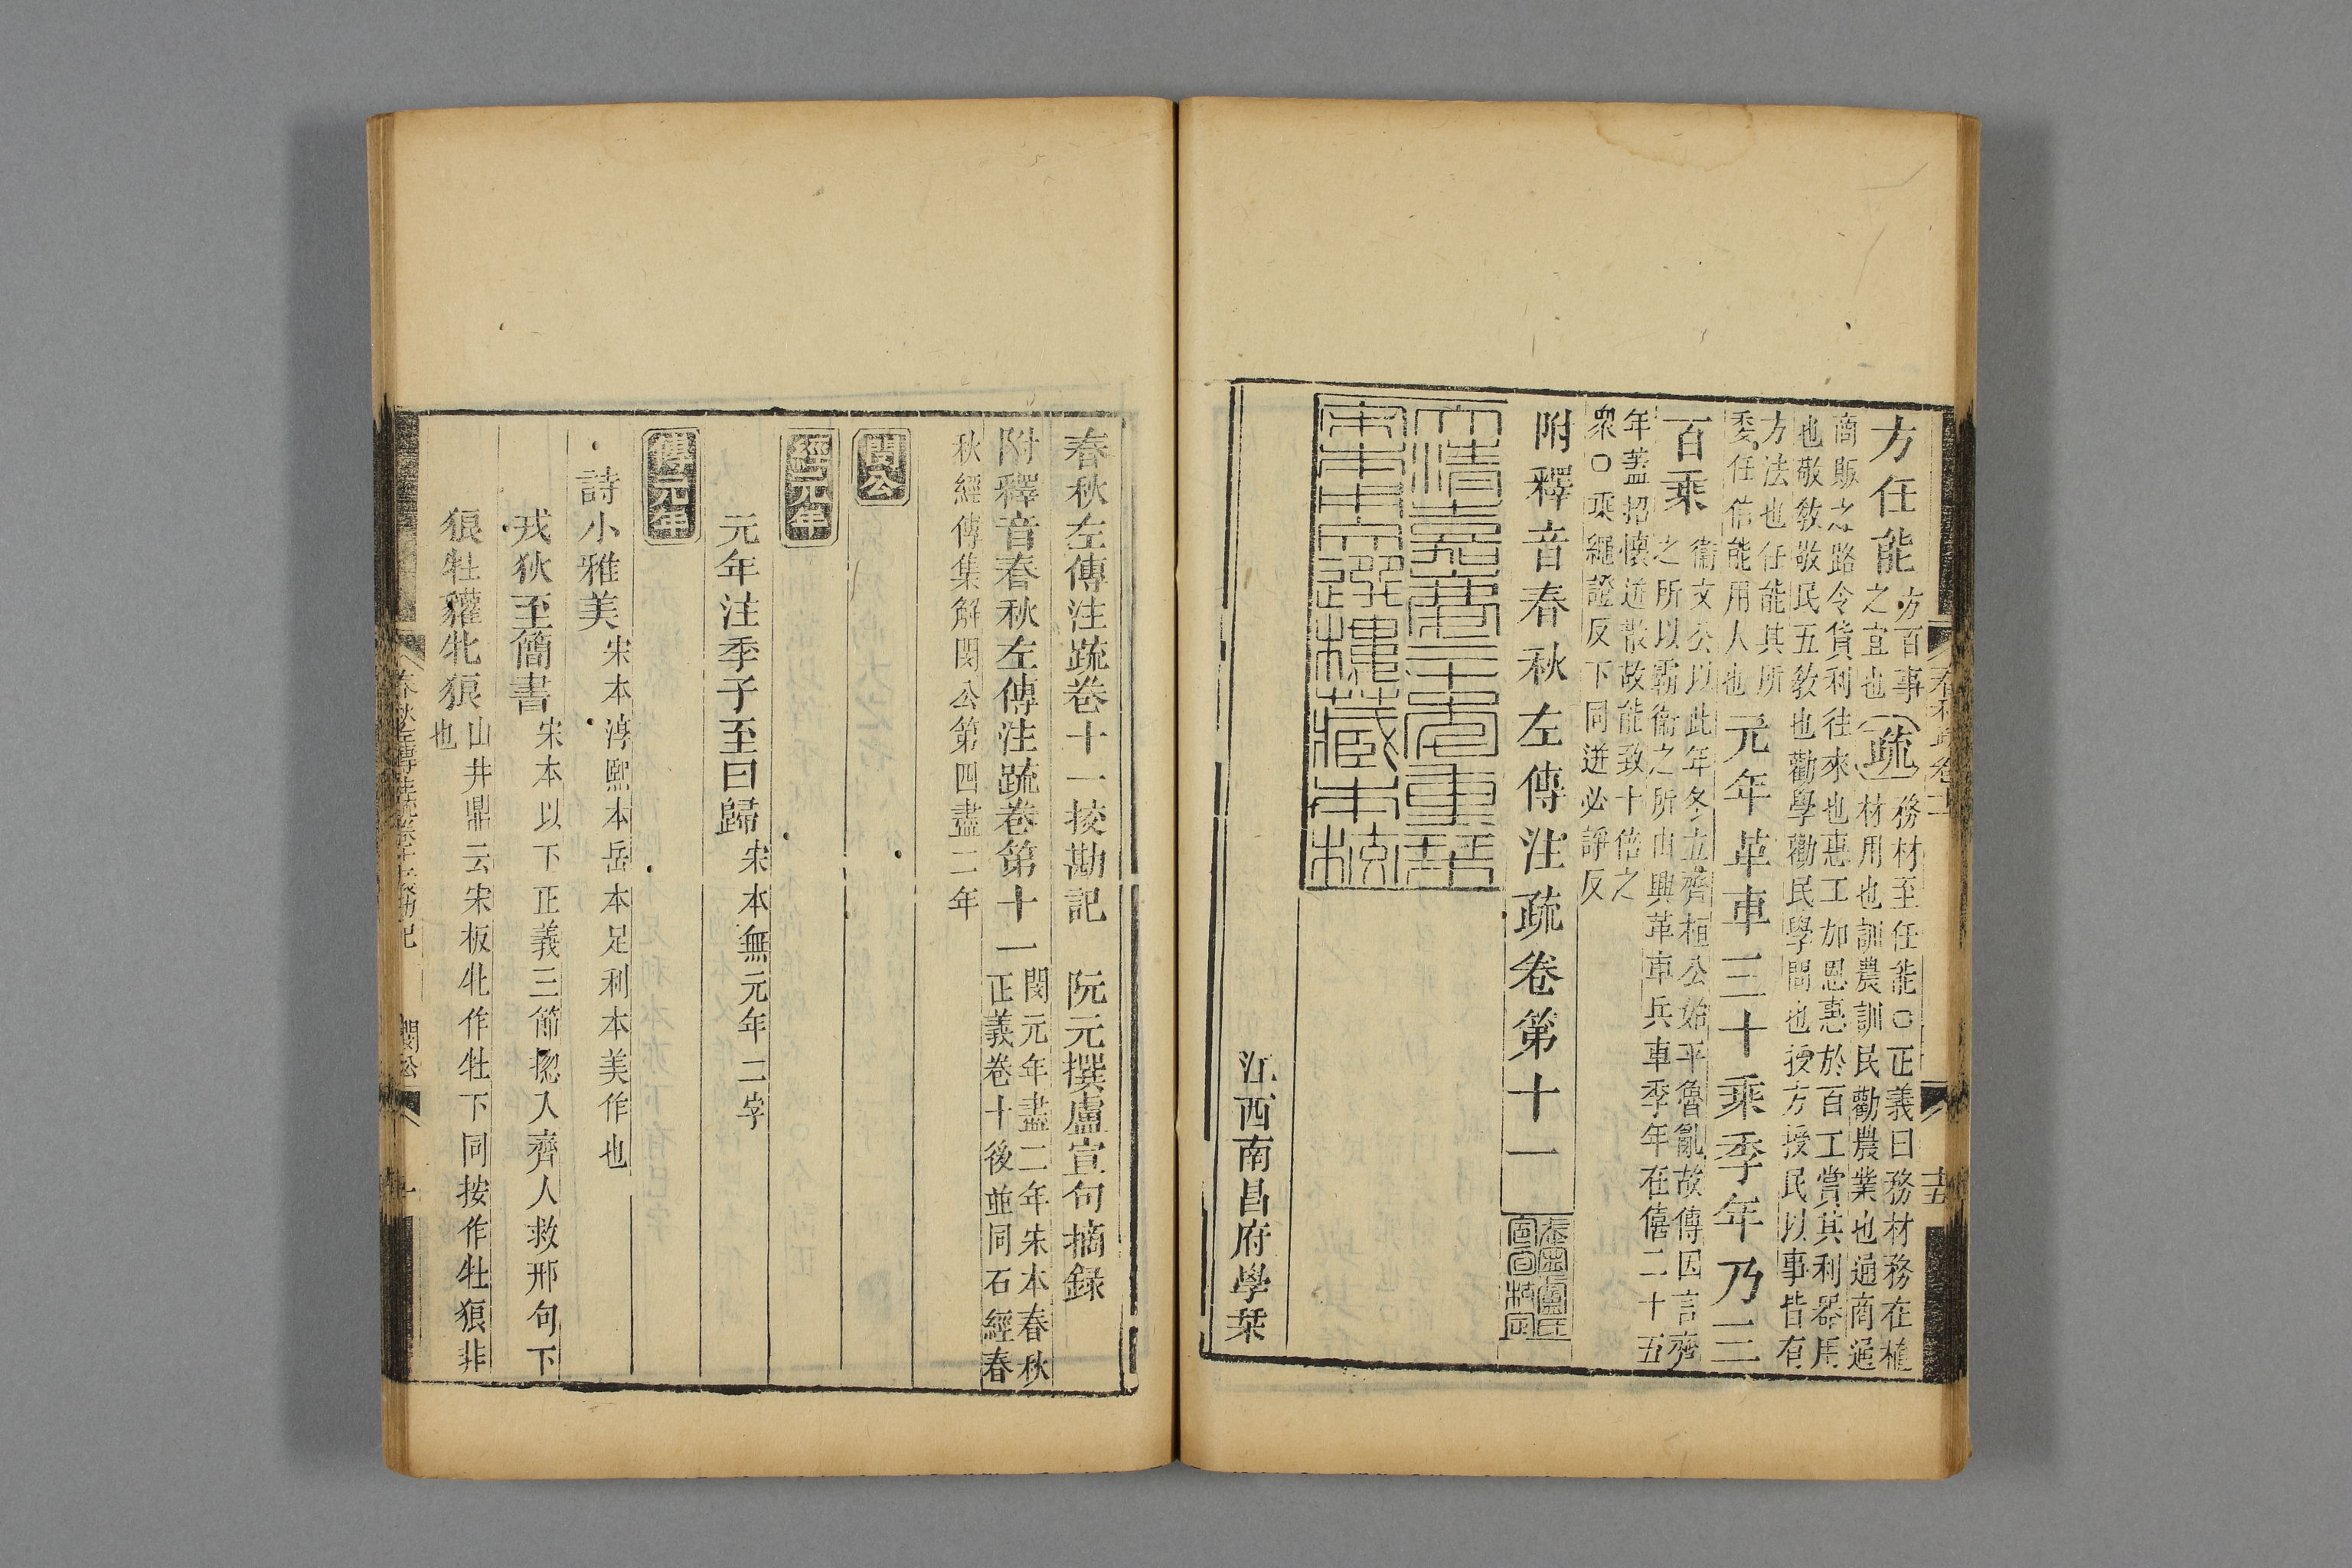 春秋疏卷十一 十五
方任能方百事
之宜也疏務材至任能○正義曰務材務在植
材用也訓農訓民勸農業也通商通
商販之路令貨利往來也惠工加恩惠於百工賞其利器用
也敬敎敬民五敎也勸學勸民學問也授方授民以事皆有
方法也任能其所
委任信能用人也元年革車三十乘季年乃三
百乘衞文公以此年冬立齊桓公始平魯亂故傳因言齊
之所以霸衞之所由興革車兵車季年在僖二十五
年蓋招懷迸散故能致十倍之
衆○乘繩證反下同迸必諍反
附釋音春秋左傳注疏卷第十一
盧氏
宣旬校定
大清嘉慶二十年重栞
宋本用文選樓藏本校
江西南昌府學栞
春秋左傳注疏卷十一挍勘記 阮元撰盧宣旬摘録
附釋音春秋左傳注疏卷第十一閔元年盡二年宋本春秋
正義卷十後並同石經春
秋經傳集解閔公第四盡二年
閔公
經元年
元年注季子至曰歸宋本無元年二字
傳元年
詩小雅美宋本淳熙本岳本足利本美作也
戎狄至簡書宋本以下正義三節揔入齊人救邢句下
狼牡貛牝狼山井鼎云宋板牝作牡下同按作牡狼非
也
春秋左傳注疏卷十一挍勘記 閔公 一